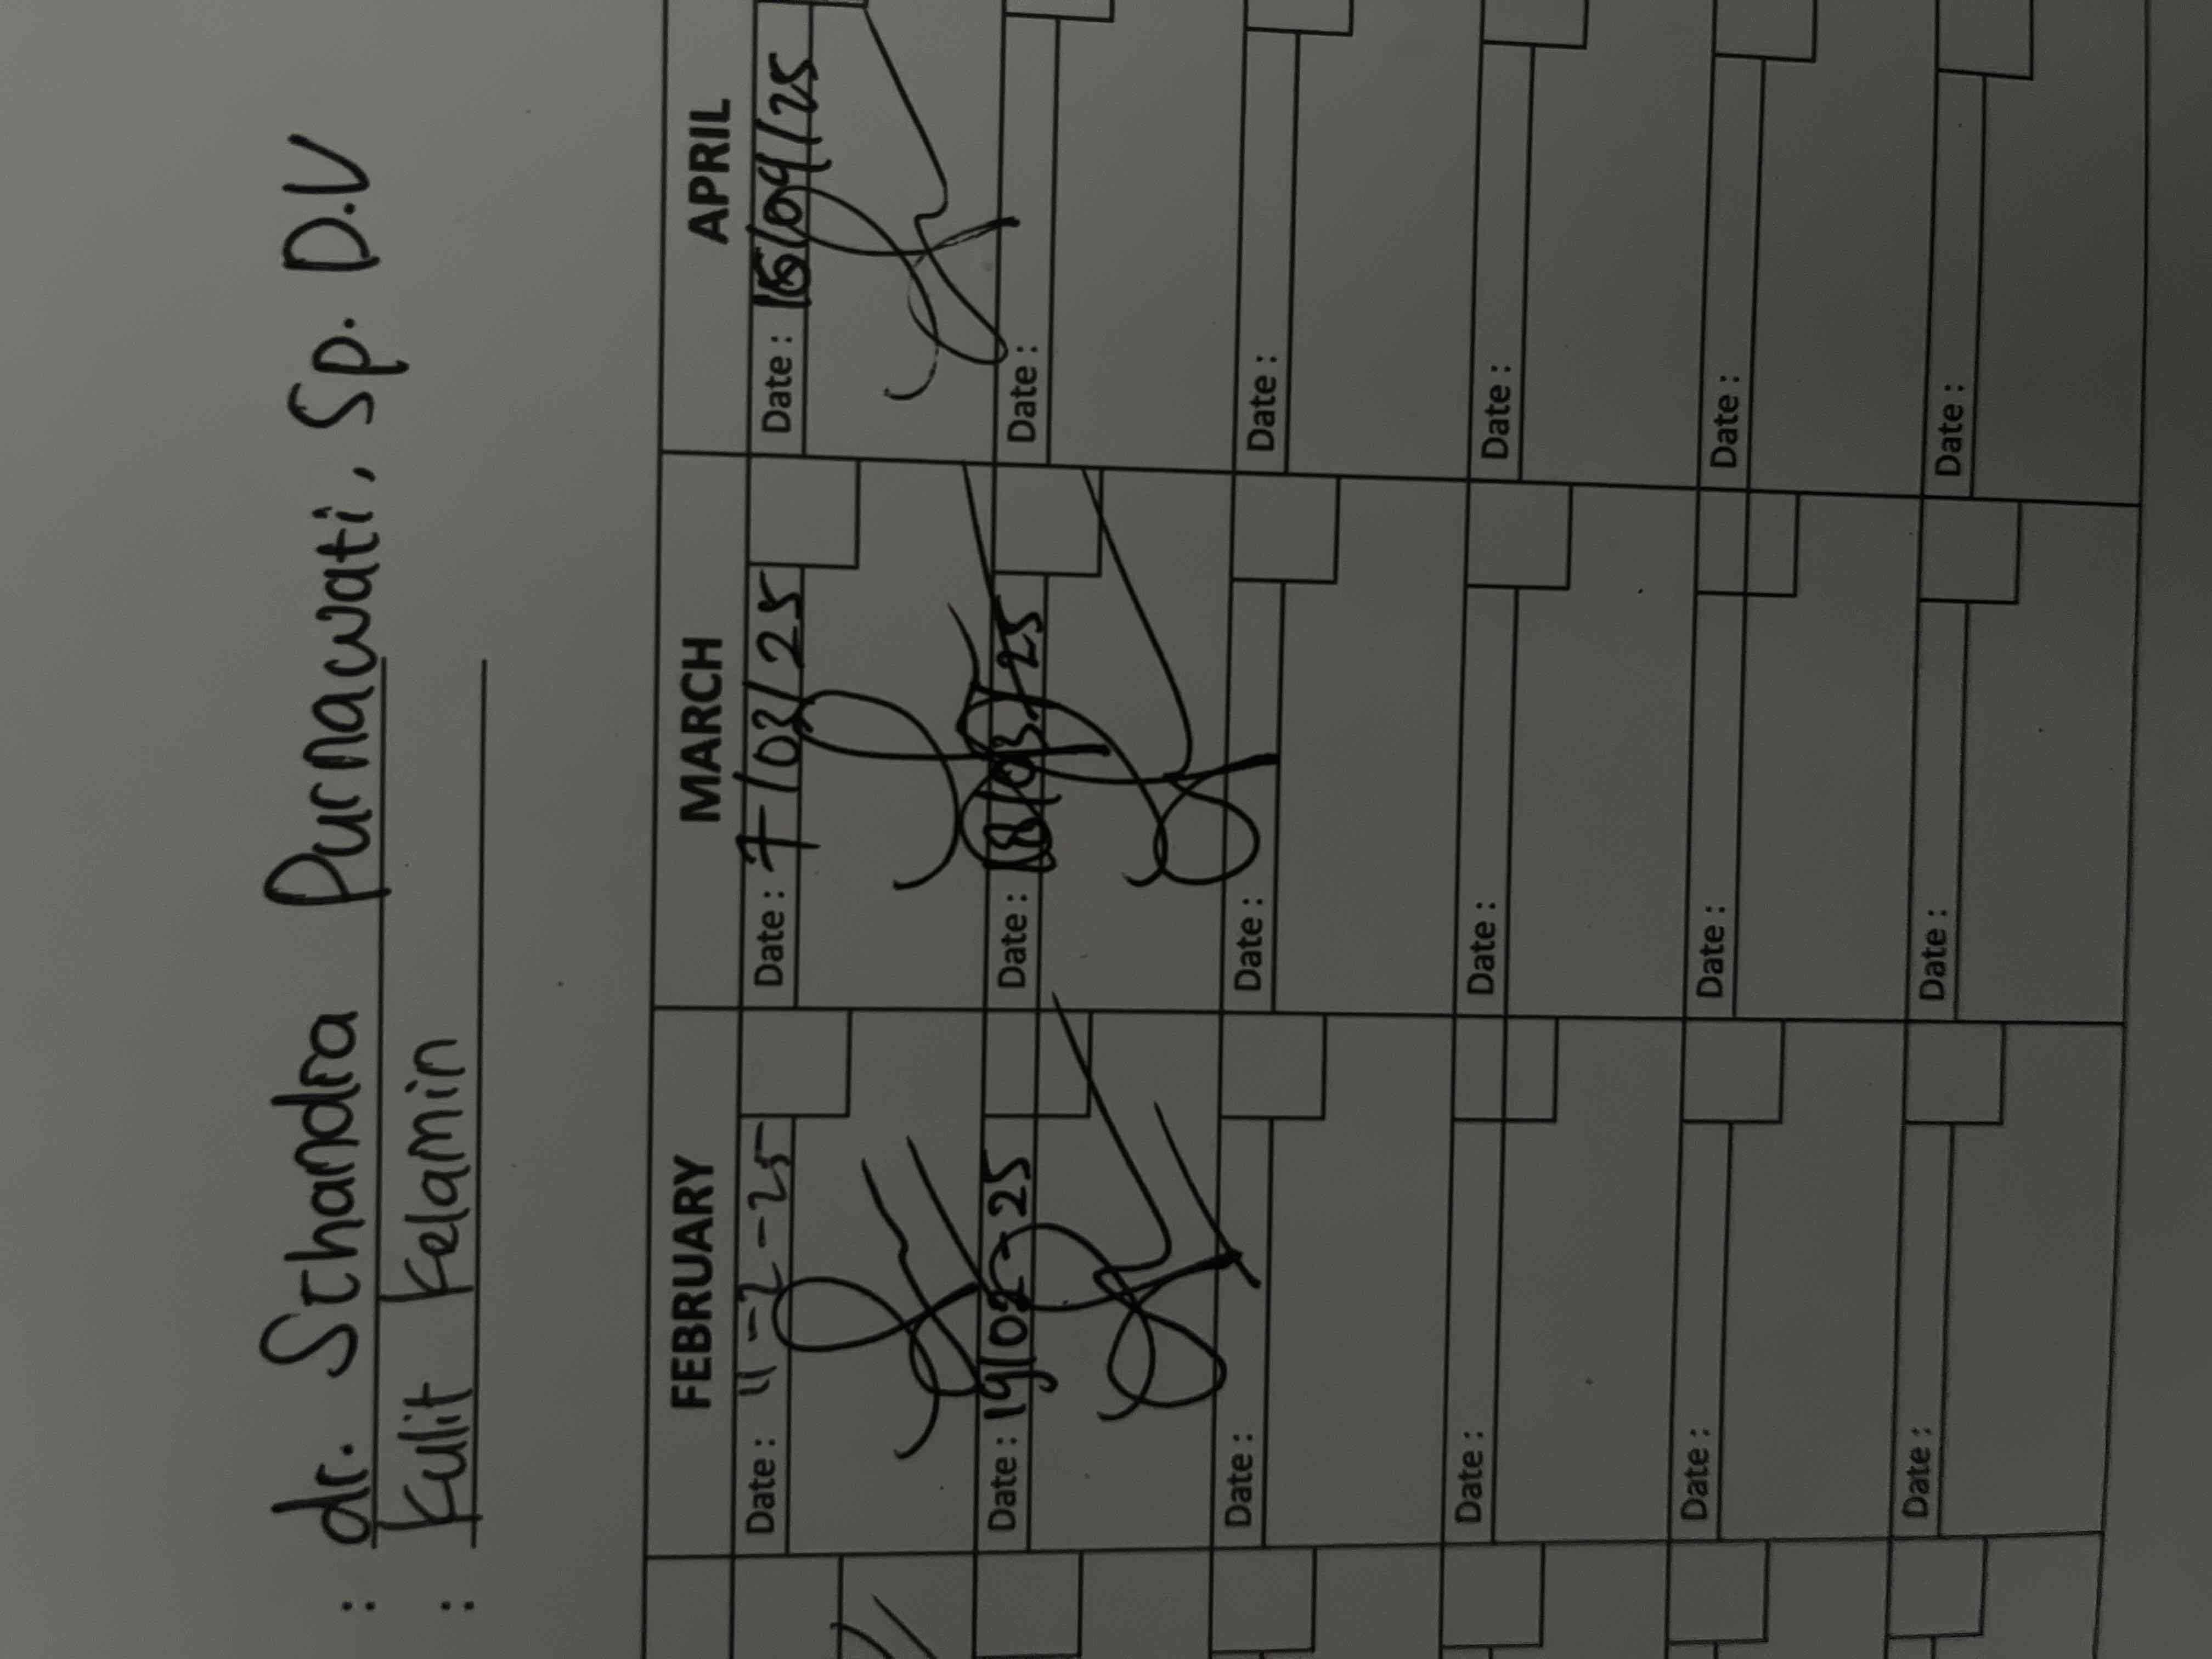 : dr. Sthandra Purnawati, Sp. D.V
: Kulit Kelamin
FEBRUARY MARCH APRIL
Date : 11-2-25 Date : 7/03/25 Date : /04/25
Date : 19/02-25 Date : 18/03/25 Date :
Date : Date : Date :
Date : Date : Date :
Date : Date : Date :
Date : Date : Date :